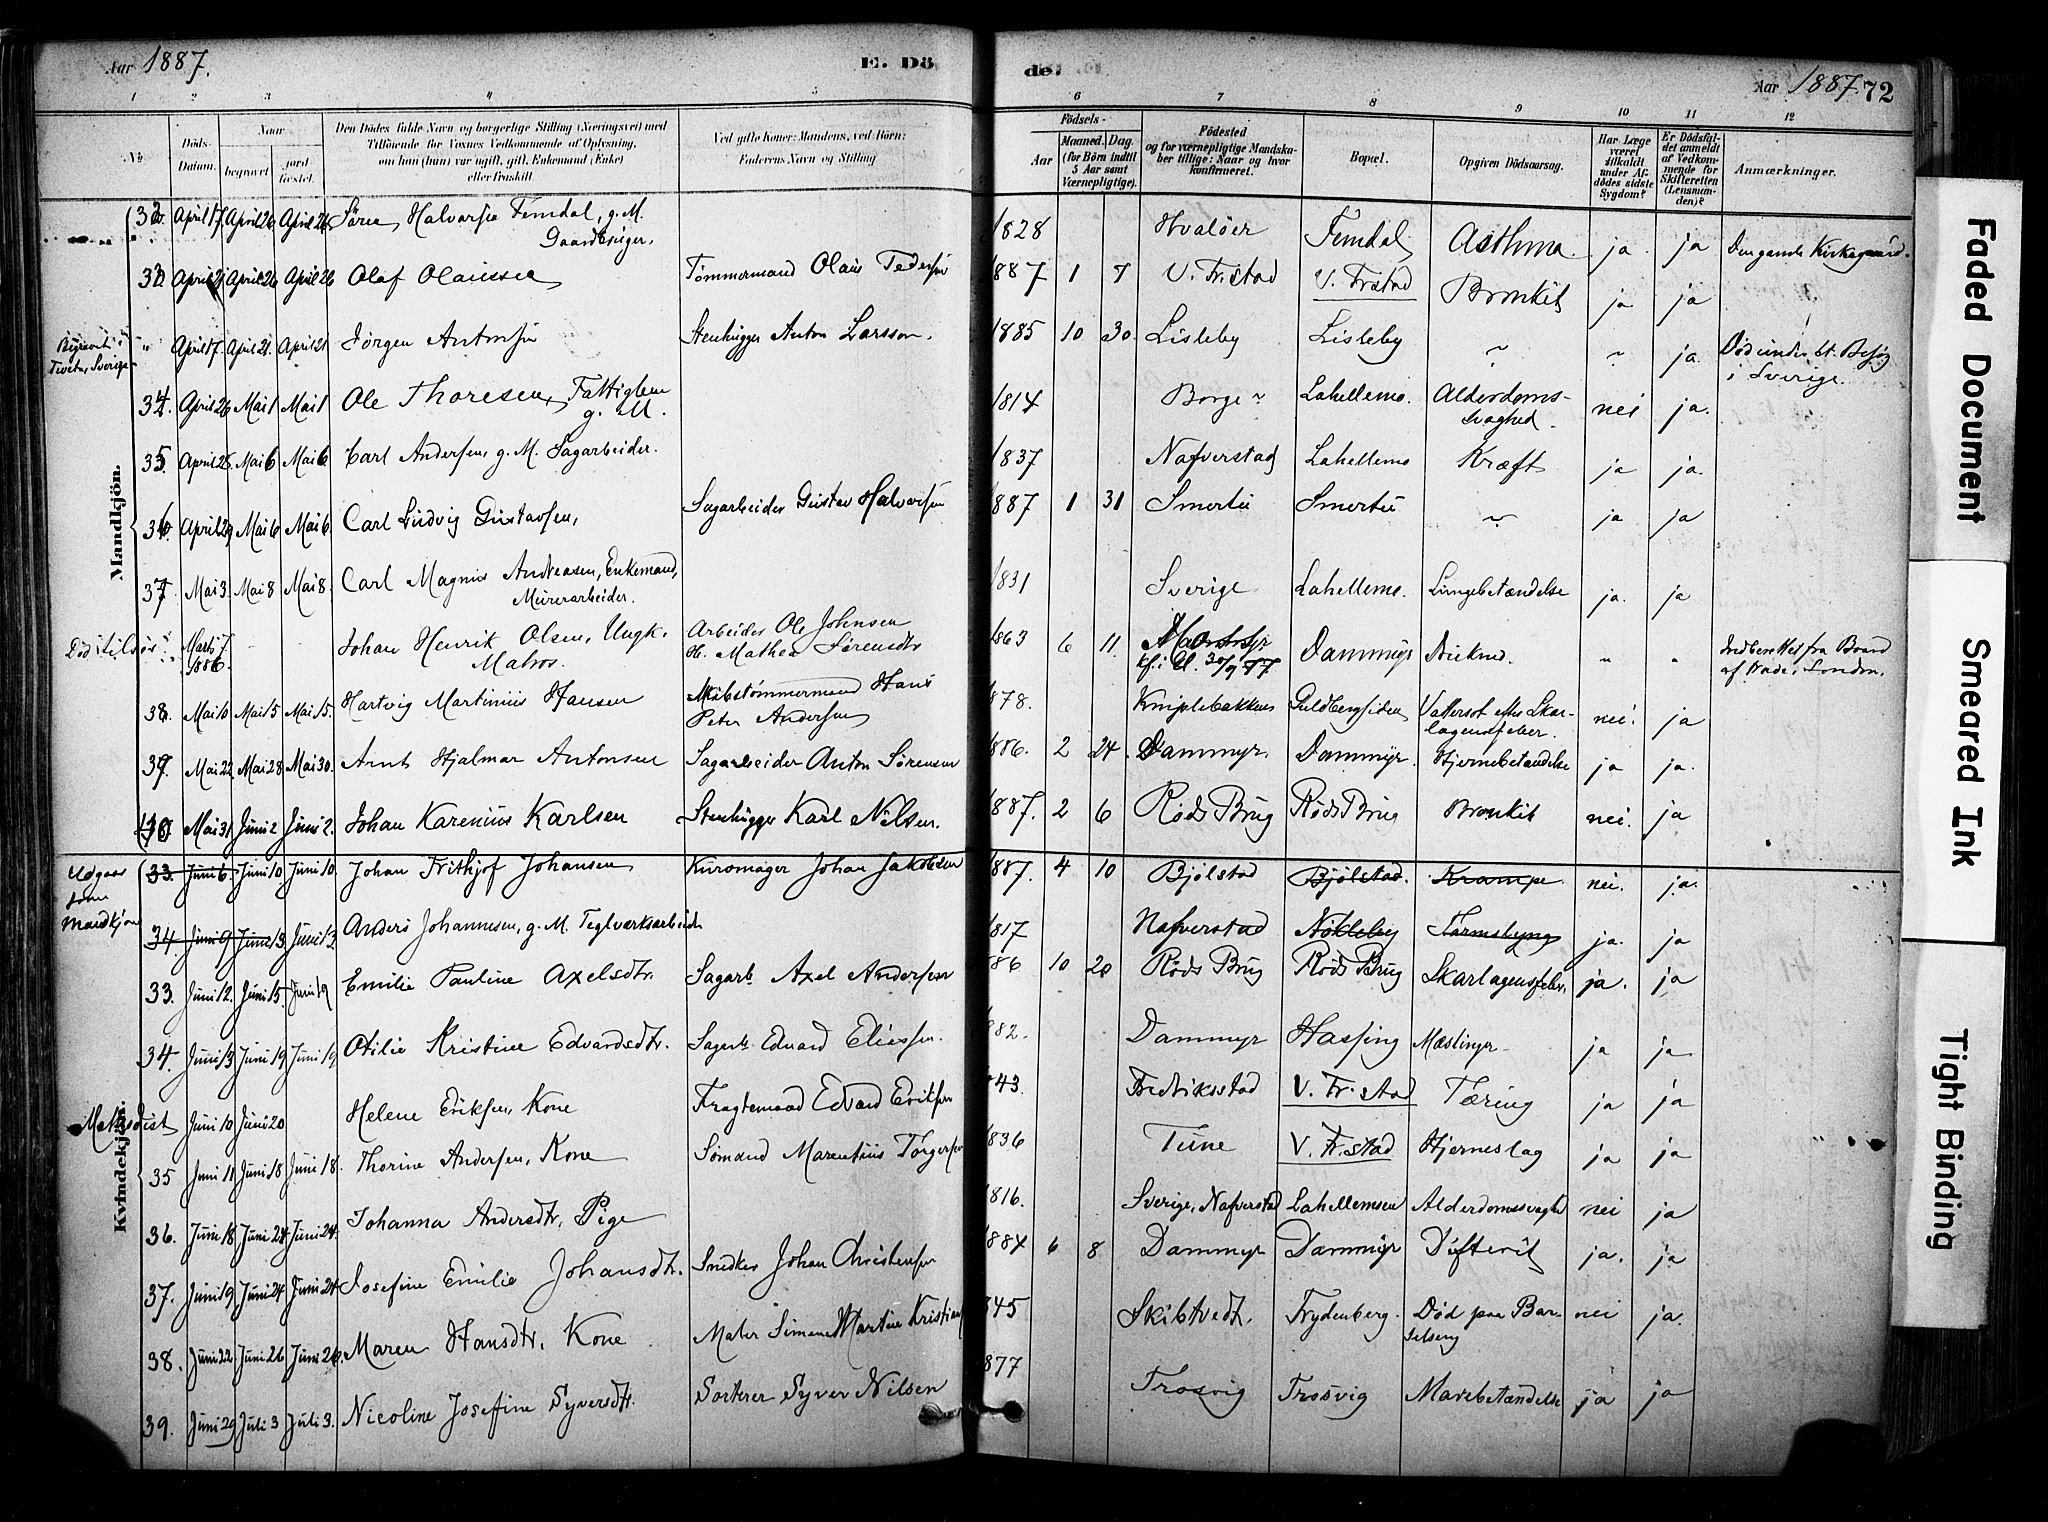 Aar 1887.
E. Dö
1 2 3 4 5
No
Döds-Datum.
Naar
begravet
jordfæstet.
Den Dödes fulde Navn og borgerlige Stilling (Næringsvei) med
Tilföiende for Voxnes Vedkommende af Oplysning,
om han (hun) var ugift, gift, Enkemand (Enke)
eller fraskilt
Ved gifte Koner: Mandens, ved Börn:
Faderens Navn og Stilling
de.
Aar 1887. 72
6 7 8 9 10 11 12
Födsels-
Aar
Maaned. Dag.
(for Börn indtil
5 Aar samt
Værnepligtige).
Födested
og for værnepligtige Mandska-
ber tillige: Naar og hvor
konfirmeret.
Bopæl.
Opgiven Dödsaarsag.
Har Læge
været
tilkaldt
under Af-
dödes sidste
Sygdom?
Er Dödsfal-
det anmeldt
af Vedkom-
mende for
Skifteretten
(Lensman-
den)?
Anmærkninger.
Mandkjön.
32. April 17. April 26 April 26 Sören Halvorsen Femdal, g. M. 1828 Hvaløer Femdal Asthma. ja ja Den gamle Kirkegaard.
Gaardbruger.
33. April 21 April 26 April 26 Olaf Olaussen Tømmermand Olaus Pedersen 1887 1 7 V. Fr.stad V. Frstad Bronkit ja ja
Begravet i " April 17. April 21. April 21 Jørgen Antonsen Stenhugger Anton Larsson. 1885 10 30 Lisleby Lisleby ~ ~ ja. Död under et Besøg
Tveten, Sverige i Sverige.
34. April 26 Mai 1 Mai 1 Ole Thoresen, Fattiglem 1814 Borge Lahellemo. Alderdoms- nei ja.
g. M. svaghed.
35. April 28 Mai 6 Mai 6 Carl Andersen, g. M. Sagarbeider. 1837 Nafverstad Lahellemo Kræft ja ja.
36. April 29 Mai 6 Mai 6. Carl Ludvig Gustavsen, Sagarbeider Gustav Halvorsen 1887 1 31 Smertu Smertu ~ ja ja
37. Mai 3. Mai 8 Mai 8. Carl Magnus Andreasen, Enkemand, 1831 Sverige Lahellemo. Lungebetændelse ja. ja
Murerarbeider.
Död tilsøs Marts 7. - - Johan Henrik Olsen, Ungk. Arbeider Ole Johnsen 1863 6 11. Dammyr Druknet. " " Indberettet fra Board
1886. Matros. H. Mathea Sørensdtr kf. i Gl. 30/9 77 af Trade, London.
38. Mai 10 Mai 15 Mai 15. Hartvig Martinius Hansen Skibstømmermand Hans 1878. Kniplebakken Guldbergsiden Vattersot efter Skar- nei. ja
Peter Andersen lagensfeber.
39. Mai 22 Mai 28 Mai 30. Arnt Hjalmar Antonsen Sagarbeider Anton Sørensen 1886. 2 24. Dammyr. Dammyr. Hjernebetændelse ja ja.
40 Mai 31 Juni 2 Juni 2. Johan Karenius Karlsen Stenhugger Karl Nilsen. 1887. 2 6 Røds Brug Røds Brug Bronkit nei. ja
Udgaar 33. Juni 6. Juni 10 Juni 10. Johan Frithjof Johansen Kursmager Johan Jakobsen 1887. 4 10 Bjølstad Bjølstad. Krampe nei. ja
som
Mandkjøn 34. Juni 9 Juni 13. Juni 13. Anders Johannesen, g. M. Teglværksarbeider 1817 Nafverstad Nökleby Tarmslyng ja. ja
Kvindekjön.
33. Juni 12. Juni 15 Juni 19 Emilie Pauline Axelsdtr. Sagarb. Axel Andersen 86 10 20 Røds Brug Røds Brug Skarlagensfeber, ja. ja
34. Juni 13 Juni 19 Juni 19 Otilie Kristine Edvardsdtr. Sagarb. Edvard Eliessen. 882. Dammyr Hassing Mæslinger ja ja
Methodist Juni 10 Juni 20 Helene Eriksen, Kone Fragtemand Edvard Eriksen 43. Fredriksstad V. Fr. stad Tæring ja ja
35 Juni 11 Juni 18 Juni 18. Thorine Andersen, Kone Sömand Marentius Torgersen 836 Tune V. Fr. stad Hjerneslag ja ja
36. Juni 18 Juni 24 Juni 24. Johanna Andersdtr, Pige 816. Sverige, Nafverstad Lahellemoen Alderdomssvaghed nei ja
37. Juni 19 Juni 24 Juni 24 Josefine Emilie Johansdtr. Snedker Johan Christensen 884 6 8 Dammyr Dammyr Difterit ja. ja
38. Juni 22 Juni 26 Juni 26. Maren Hansdtr, Kone Maler Simen Martin Kristiansen 845 Skibtvedt. Frydenberg. Död paa Bar- nei ja.
selseng
39. Juni 29 Juli 3 Juli 3. Nicoline Josefine Syversdtr. Sorterer Syver Nilsen 877 Trosvig Trosvig Mavebetændelse ja ja
Faded Document
Smeared Ink
Tight Binding